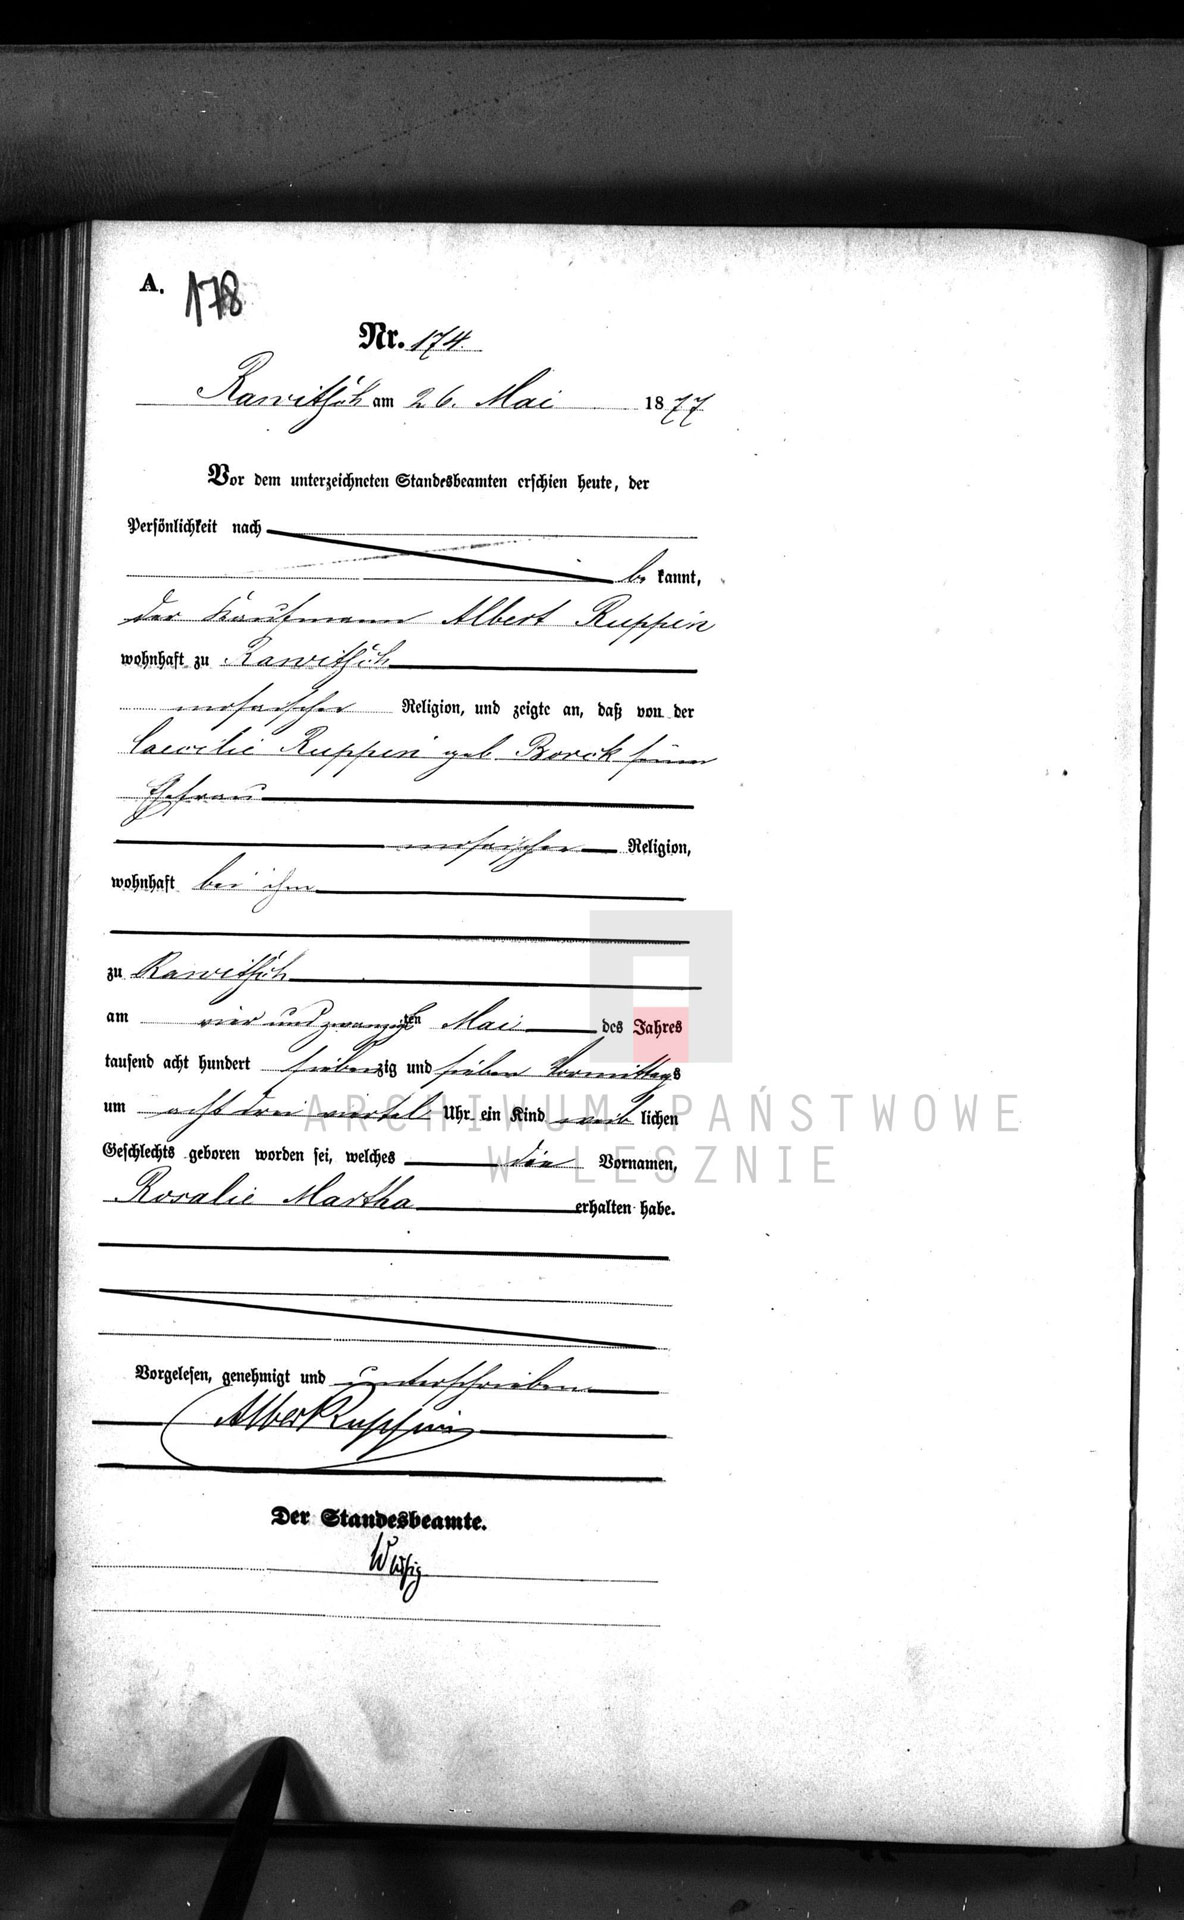 A. 178
Nr. 174.
Rawitsch am 26. Mai 1877
Vor dem unterzeichneten Standesbeamten erschien heute, der
Persönlichkeit nach
be kannt,
der Kaufmann Albert Ruppin
wohnhaft zu Rawitsch
mosaischer Religion, und zeigte an, daß von der
Caecilie Ruppin geb. Borck seiner
Ehefrau
mosaischer Religion,
wohnhaft bei ihm
zu Rawitsch
am vier und zwanzigsten Mai des Jahres
tausend acht hundert siebenzig und sieben Vormittags
um acht drei viertel Uhr ein Kind weiblichen
Geschlechts geboren worden sei, welches die Vornamen,
Rosalie Martha erhalten habe.
Vorgelesen, genehmigt und unterschrieben
Albert Ruppin
Der Standesbeamte.
ARCHIWUM PAŃSTWOWE
W LESZNIE